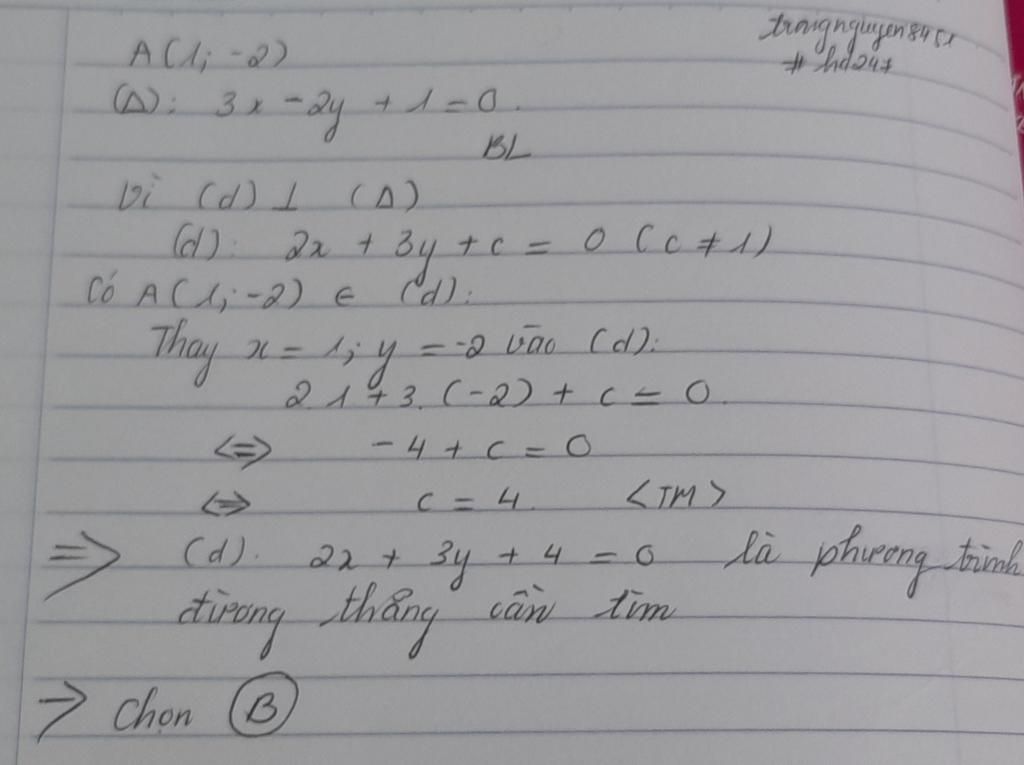 trongnguyen8451
# hd247
A(1; -2)
(Δ): 3x - 2y + 1 = 0.
BL
Vì (d) ⊥ (Δ)
(d): 2x + 3y + c = 0 (c ≠ 1)
Có A(1; -2) ∈ (d):
Thay x = 1; y = -2 vào (d):
2.1 + 3.(-2) + c = 0.
<=> -4 + c = 0
<=> c = 4. <TM>
=> (d). 2x + 3y + 4 = 0 là phương trình
đường thẳng cần tìm
-> Chọn B